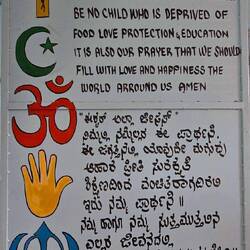 BE NO CHILD WHO IS DEPRIVED OF
FOOD LOVE PROTECTION & EDUCATION
IT IS ALSO OUR PRAYER THAT WE SHOULD
FILL WITH LOVE AND HAPPINESS THE
WORLD ARROUND US AMEN
ॐ
"ಈಶ್ವರ್ ಅಲ್ಲಾ ಜೀಸಸ್"
ನಿಮ್ಮಲ್ಲಿ ನಮ್ಮೆಲ್ಲರ ಈ ಪ್ರಾರ್ಥನೆ.
ಈ ಜಗತ್ತಿನಲ್ಲಿ ಯಾವುದೇ ಮಗುವು
ಆಹಾರ ಪ್ರೀತಿ ಸುರಕ್ಷತೆ
ಶಿಕ್ಷಣದಿಂದ ವಂಚಿತರಾಗದಿರಲಿ
ಇದು ನಮ್ಮ ಪ್ರಾರ್ಥನೆ ॥
ನಮ್ಮ ಹಾಗೂ ನಮ್ಮ ಸುತ್ತಮುತ್ತಲಿನ
ಎಲ್ಲರ ಜೀವನದಲ್ಲಿ